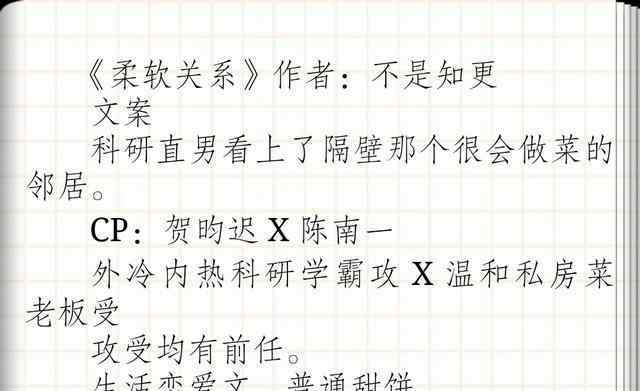 《柔软关系》作者：不是知更
文案
科研直男看上了隔壁那个很会做菜的
邻居。
CP：贺昀迟 X 陈南一
外冷内热科研学霸攻 X 温和私房菜
老板受
攻受均有前任。
生活恋爱文，普通甜饼